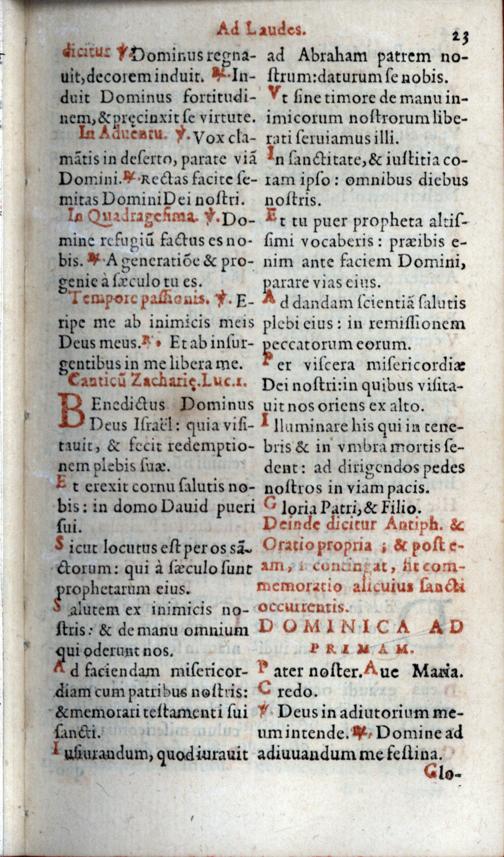 Ad Laudes.
23
dicitur ℣. Dominus regna-
uit, decorem induit. ℟. In-
duit Dominus fortitudi-
nem, & pręcinxit se virtute.
In Aduentu. ℣. Vox cla-
mãtis in deserto, parate viã
Domini. ℟. Rectas facite se-
mitas Domini Dei nostri.
In Quadragesima. ℣. Do-
mine refugiũ factus es no-
bis. ℟. A generatiõe & pro-
genie à sæculo tu es.
Tempore passionis. ℣. E-
ripe me ab inimicis meis
Deus meus. ℟. Et ab insur-
gentibus in me libera me.
Canticũ Zacharię. Luc. 1.
BEnedictus Dominus
Deus Israël: quia visi-
tauit, & fecit redemptio-
nem plebis suæ.
Et erexit cornu salutis no-
bis: in domo Dauid pueri
sui.
Sicut locutus est per os sã-
ctorum: qui à sæculo sunt
prophetarum eius.
Salutem ex inimicis no-
stris: & de manu omnium
qui oderunt nos.
Ad faciendam misericor-
diam cum patribus nostris:
& memorari testamenti sui
sancti.
Iusiurandum, quod iurauit
ad Abraham patrem no-
strum: daturum se nobis.
Vt sine timore de manu in-
imicorum nostrorum libe-
rati seruiamus illi.
In sanctitate, & iustitia co-
ram ipso: omnibus diebus
nostris.
Et tu puer propheta altis-
simi vocaberis: præibis e-
nim ante faciem Domini,
parare vias eius.
Ad dandam scientiã salutis
plebi eius: in remissionem
peccatorum eorum.
Per viscera misericordiæ
Dei nostri: in quibus visita-
uit nos oriens ex alto.
Illuminare his qui in tene-
bris & in vmbra mortis se-
dent: ad dirigendos pedes
nostros in viam pacis.
Gloria Patri, & Filio.
Deinde dicitur Antiph. &
Oratio propria; & poste-
am, si contingat, fit com-
memoratio alicuius sancti
occurrentis.
DOMINICA AD
PRIMAM.
Pater noster. Aue Maria.
Credo.
℣. Deus in adiutorium me-
um intende. ℟. Domine ad
adiuuandum me festina.
Glo-